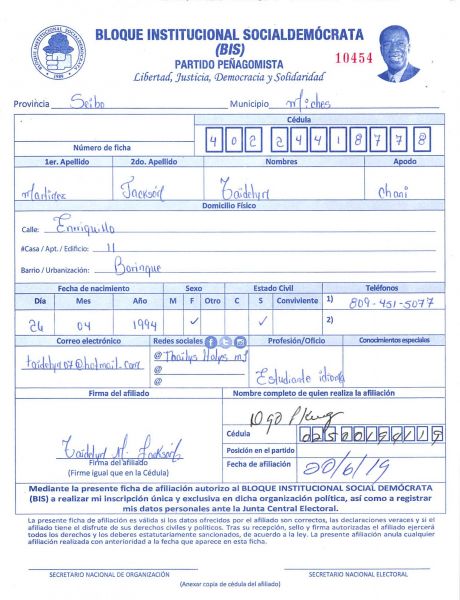 BLOQUE INSTITUCIONAL SOCIALDEMÓCRATA
(BIS)
10454
PARTIDO PEÑAGOMISTA
Libertad, Justicia, Democracia y Solidaridad
BLOQUE INSTITUCIONAL SOCIALDEMOCRATA
1989
Provincia Seibo Municipio Miches
Cédula
Número de ficha 402 2441877 8
1er. Apellido 2do. Apellido Nombres Apodo
Martinez Jackson Taidelyn chani
Domicilio Físico
Calle: Enriquillo
#Casa / Apt. / Edificio: 11
Barrio / Urbanización: Borinque
Fecha de nacimiento Sexo Estado Civil Teléfonos
Día Mes Año M F Otro C S Conviviente 1) 809-451-5077
26 04 1994 ✓ ✓ 2)
Correo electrónico Redes sociales Profesión/Oficio Conocimientos especiales
@Thailys Halys mJ
@
@
Estudiante idioma
Firma del afiliado Nombre completo de quien realiza la afiliación
Cédula
Taidelyn M. Jackson
Posición en el partido
Firma del afiliado
(Firme igual que en la Cédula)
Fecha de afiliación 20/6/19
Mediante la presente ficha de afiliación autorizo al BLOQUE INSTITUCIONAL SOCIAL DEMÓCRATA
(BIS) a realizar mi inscripción única y exclusiva en dicha organización política, así como a registrar
mis datos personales ante la Junta Central Electoral.
La presente ficha de afiliación es válida si los datos ofrecidos por el afiliado son correctos, las declaraciones veraces y si el
afiliado tiene el disfrute de sus derechos civiles y políticos. Tras su recepción, sello y firma autorizadas el afiliado ejercerá
todos los derechos y los deberes estatutariamente sancionados, de acuerdo a la ley. La presente afiliación anula cualquier
afiliación realizada con anterioridad a la fecha que aparece en esta ficha.
SECRETARIO NACIONAL DE ORGANIZACIÓN SECRETARIO NACIONAL ELECTORAL
(Anexar copia de cédula del afiliado)